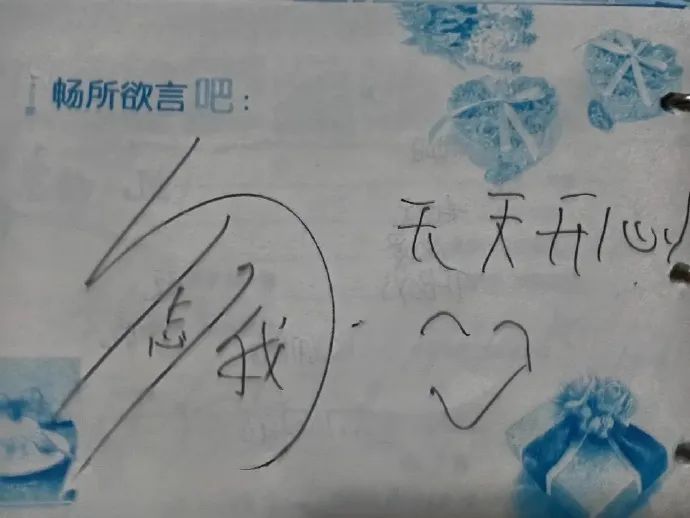 畅所欲言吧:
勿忘我
天天开心